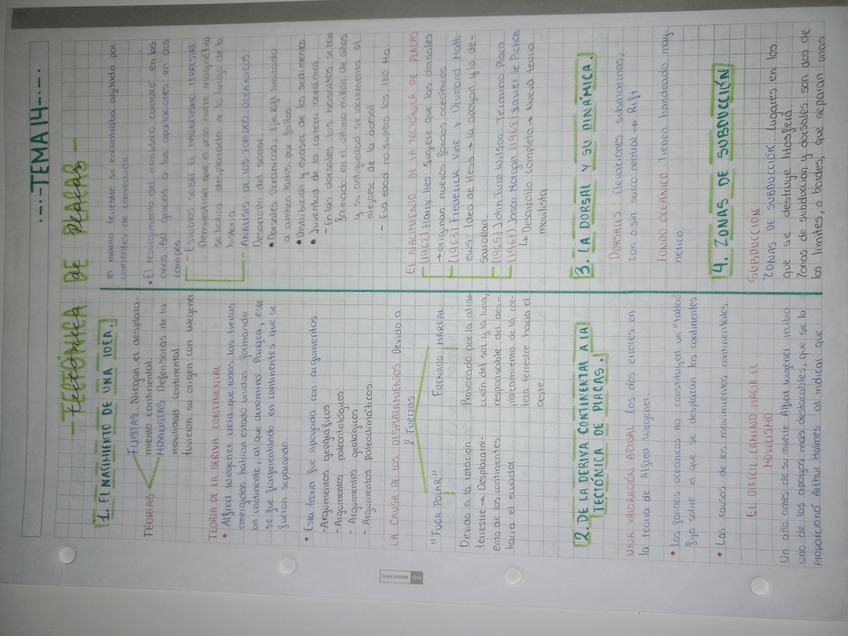 ·-·-TEMA 14-·-·
-TECTÓNICA DE PLACAS-
1. EL NACIMIENTO DE UNA IDEA.
TEORÍAS
FIJISTAS. Niegan el desplaza-
miento continental.
MOVILISTAS. Defensoras de la
movilidad continental
tuvieron su origen con Wegener
TEORÍA DE LA DERIVA CONTINENTAL
• Alfred Wegener creía que todas las tierras
emergidas habían estado unidas formando
un continente, al que denominó Pangea, este
se fue fragmentando en continentes que se
fueron separando.
• Esta teoría fue apoyada con argumentos.
- Argumentos geográficos
- Argumentos paleontológicos
- Argumentos geológicos
- Argumentos paleoclimáticos.
LA CAUSA DE LOS DESPLAZAMIENTOS Debido a
2 Fuerzas
"FUGA POLAR"
Debido a la rotación
terrestre → Desplazami-
ento de los continentes
hacia el ecuador.
FRENADO MAREAL
Provocado por la atrac-
ción del sol y la luna,
responsable del des-
plazamiento de la cor-
teza terrestre hacia el
oeste.
2. DE LA DERIVA CONTINENTAL A LA
TECTÓNICA DE PLACAS.
UNA VALORACIÓN ACTUAL Los dos errores en
la teoría de Alfred Wegener.
• Los fondos oceánicos no constituyen un
fijo sobre el que se desplazan los continentes
• Las causas de los movimientos continentales.
EL DIFÍCIL CAMINO HACIA EL
MOVILISMO
Un año antes de su muerte Alfred Wegener recibió
uno de los apoyos más destacables, que se lo
proporcionó Arthur Holmes al indicar que
el manto terrestre se encontraba agitado por
corrientes de convección.
• El resurgimiento del movilismo comenzó en los
años 50 gracias a las aportaciones en dos
campos.
- ESTUDIOS SOBRE EL MAGNETISMO TERRESTRE
Demuestran que el polo norte magnético
se había desplazado a lo largo de la
historia.
- ANÁLISIS DE LOS FONDOS OCEÁNICOS.
Desarrollo del sonar.
• Dorsales Oceánicas. Eje Rift limitado
a ambos lados por fallas.
• Distribución y escasez de los sedimentos.
• Juventud de la corteza oceánica
- En las dorsales los basaltos se han
formado en el último millón de años
y su antigüedad se incrementa al
alejarse de la dorsal
- Esa edad no supera los 180 Ma
EL NACIMIENTO DE LA TECTÓNICA DE PLACAS
(1962) Harry Hess sugiere que las dorsales
→ originan nuevos fondos oceánicos
(1963) Frederick Vine y Drumond Matth-
ews: Idea de Hess → la apoyan y la de-
sarrollan.
(1965) John Tuzo Wilson. Termino Placa
(1968) Jason Morgan (1968) Xavier le Pichon
↳ Desarrollo completo → Nueva teoría
movilista
3. LA DORSAL Y SU DINÁMICA.
DORSALES Elevaciones submarinas,
con o sin surco central → Rift
FONDO OCEÁNICO Tienen bandeado mag-
nético.
4. ZONAS DE SUBDUCCIÓN
SUBDUCCIÓN
ZONAS DE SUBDUCCIÓN: lugares en los
que se destruye litosfera.
Zonas de subducción y dorsales son dos de
los límites, o bordes, que separan unas